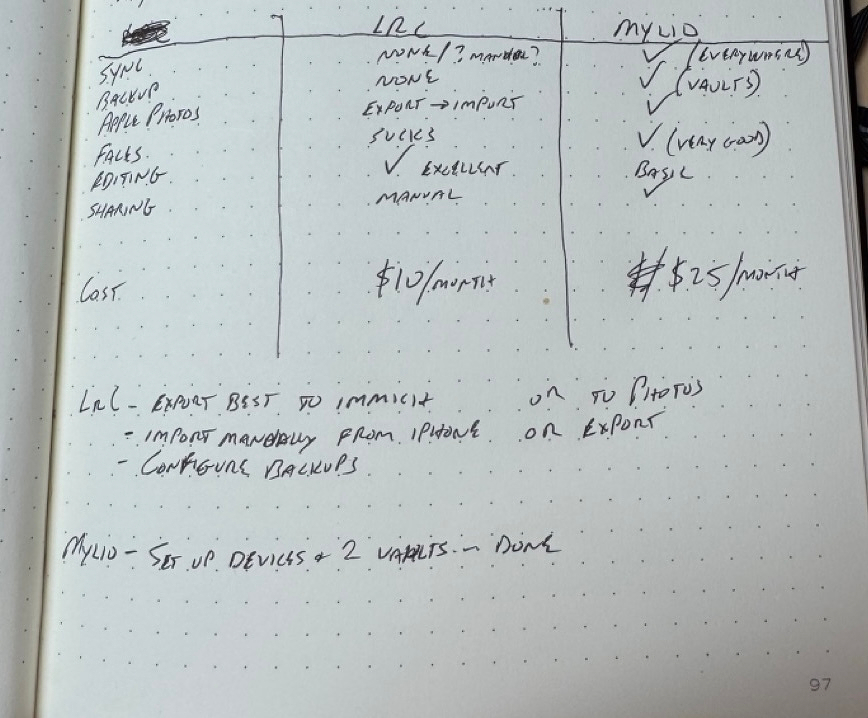 LRC MYLIO
SYNC NONE/?MANUAL? ✓ (EVERYWHERE)
BACKUP NONE ✓ (VAULTS)
APPLE PHOTOS EXPORT → IMPORT ✓
FACES SUCKS ✓ (VERY GOOD)
EDITING ✓ EXCELLENT BASIC
SHARING MANUAL ✓
COST $10/MONTH $25/MONTH
LRC - EXPORT BEST TO IMMICH OR TO PHOTOS
- IMPORT MANUALLY FROM IPHONE OR EXPORT
- CONFIGURE BACKUPS
MYLIO - SET UP DEVICES + 2 VAULTS - DONE
97